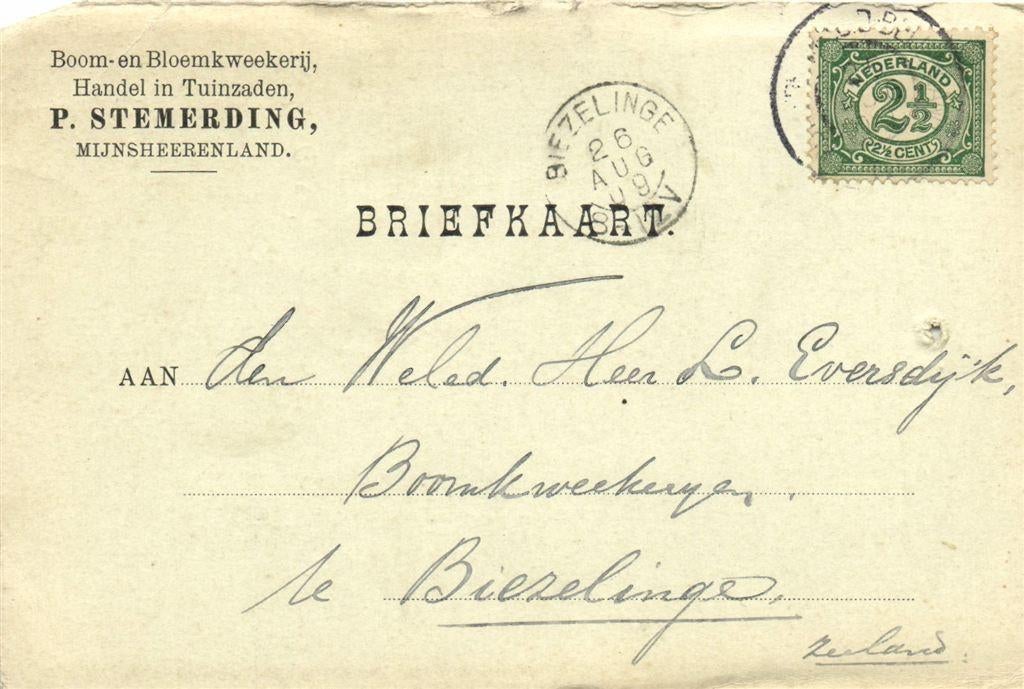 Boom- en Bloemkweekerij,
Handel in Tuinzaden,
P. STEMERDING,
MIJNSHEERENLAND.
NEDERLAND
2½
2½ CENT
BIEZELINGE
26
AUG
09
BRIEFKAART.
AAN den Weled. Heer L. Eversdijk,
Boomkweekerijen.
te Biezelinge.
Zeeland.